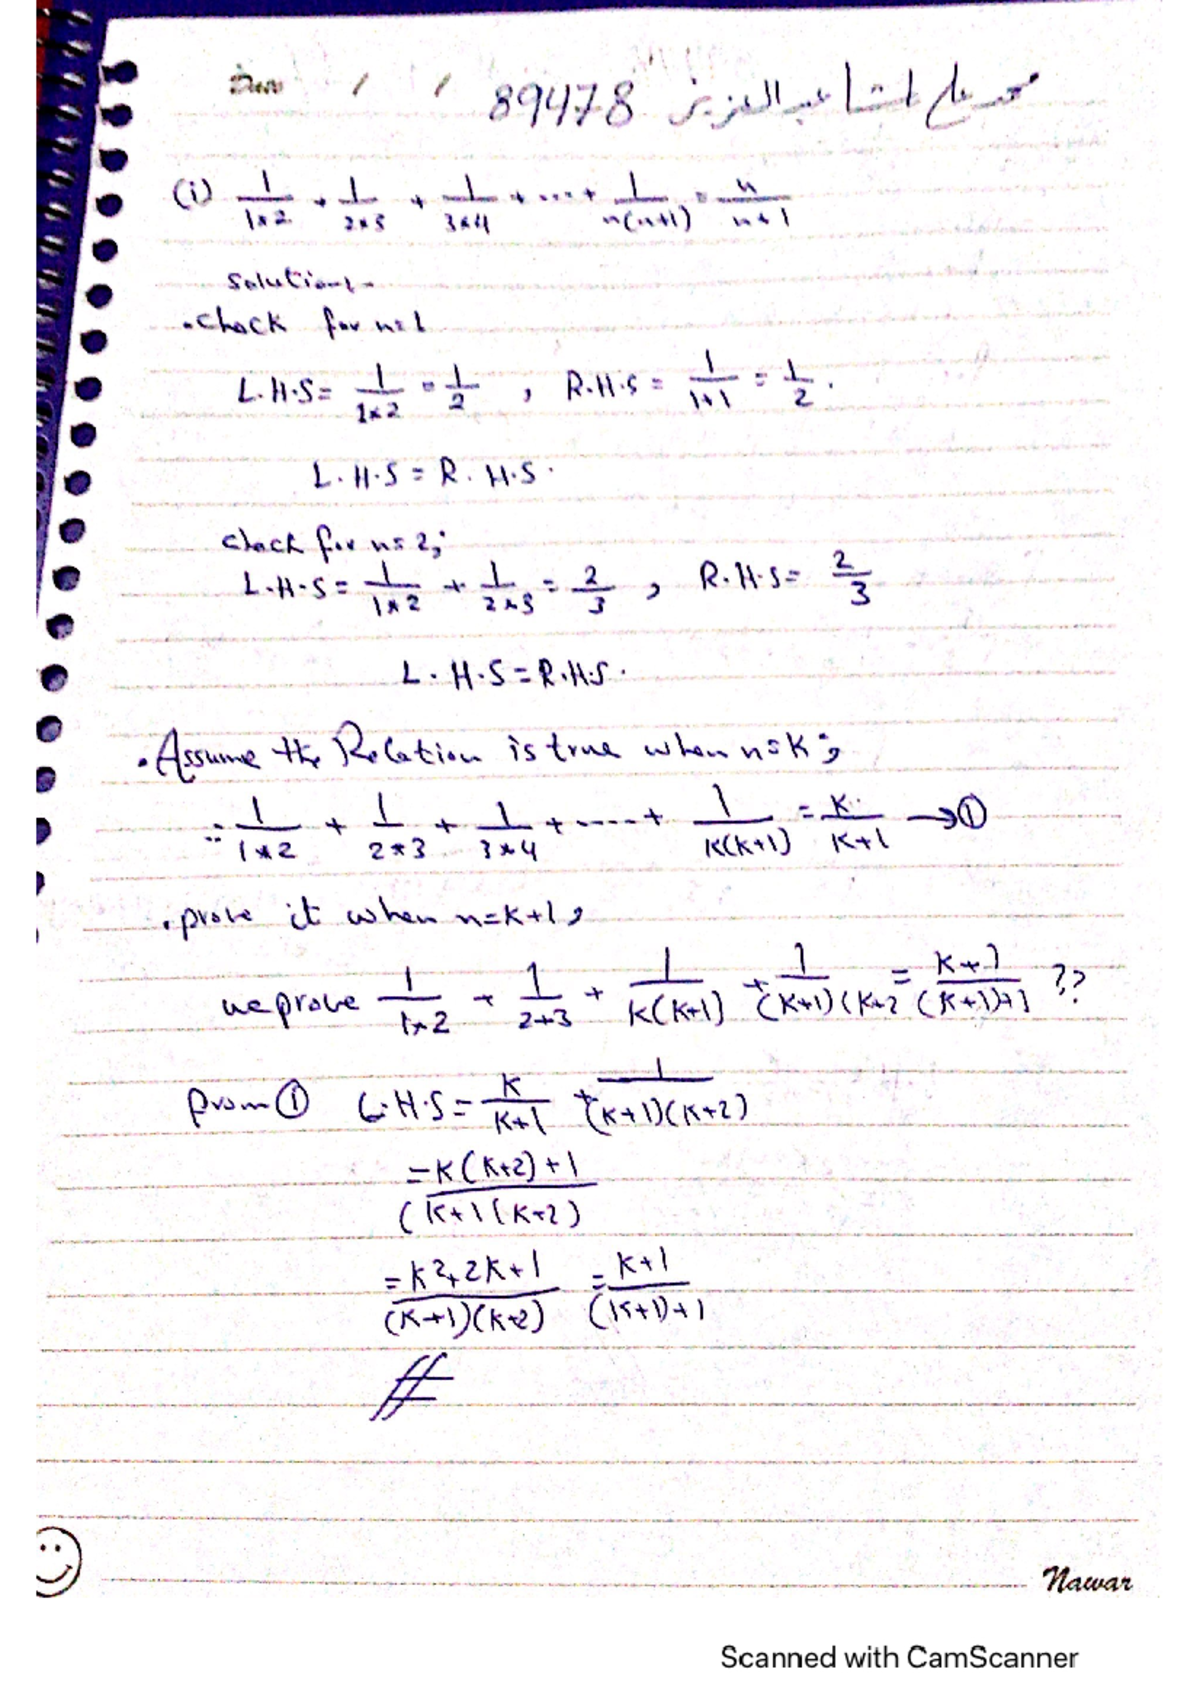 Date / / 89478 محمد علي عبدالعزيز
(i) 1/(1*2) + 1/(2*3) + 1/(3*4) + ... + 1/(n(n+1)) = n/(n+1)
Solution:-
. check for n=1
L.H.S = 1/(1*2) = 1/2 , R.H.S = 1/(1+1) = 1/2 .
L.H.S = R.H.S .
check for n=2;
L.H.S = 1/(1*2) + 1/(2*3) = 2/3 , R.H.S = 2/3
L.H.S = R.H.S .
. Assume the Relation is true when n=K ;
∴ 1/(1*2) + 1/(2*3) + 1/(3*4) + ..... + 1/(K(K+1)) = K/(K+1) → ①
. prove it when n=K+1 ,
we prove 1/(1*2) + 1/(2+3) + 1/(K(K+1)) + 1/((K+1)(K+2) = (K+1)/((K+1)+1) ??
prom ① L.H.S = K/(K+1) + 1/((K+1)(K+2))
= K(K+2)+1/((K+1(K+2))
= K²+2K+1/((K+1)(K+2)) = K+1/((K+1)+1)
Nawar
Scanned with CamScanner